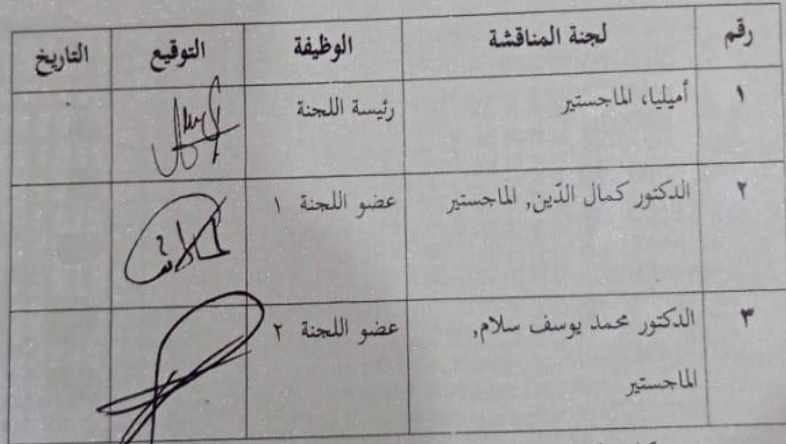 رقم لجنة المناقشة الوظيفة التوقيع التاريخ
١ أميليا، الماجستير رئيسة اللجنة
٢ الدكتور كمال الدّين, الماجستير عضو اللجنة ١
٣ الدكتور محمد يوسف سلام, عضو اللجنة ٢
الماجستير